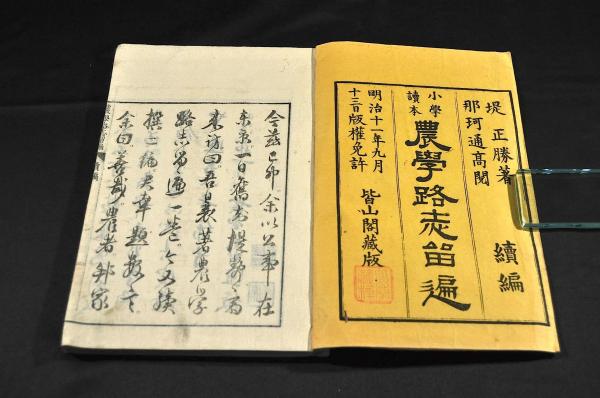 堤正勝著
那珂通高閲
續編
小學讀本
農學路志留遍
明治十一年九月
十三日版權免許
皆山閣藏版
今茲己卯余以公事在
東京一日舊友堤静斎
来訪曰吾曩著農学
路志留遍一巻今又続
撰之編
余曰善哉農者邦家